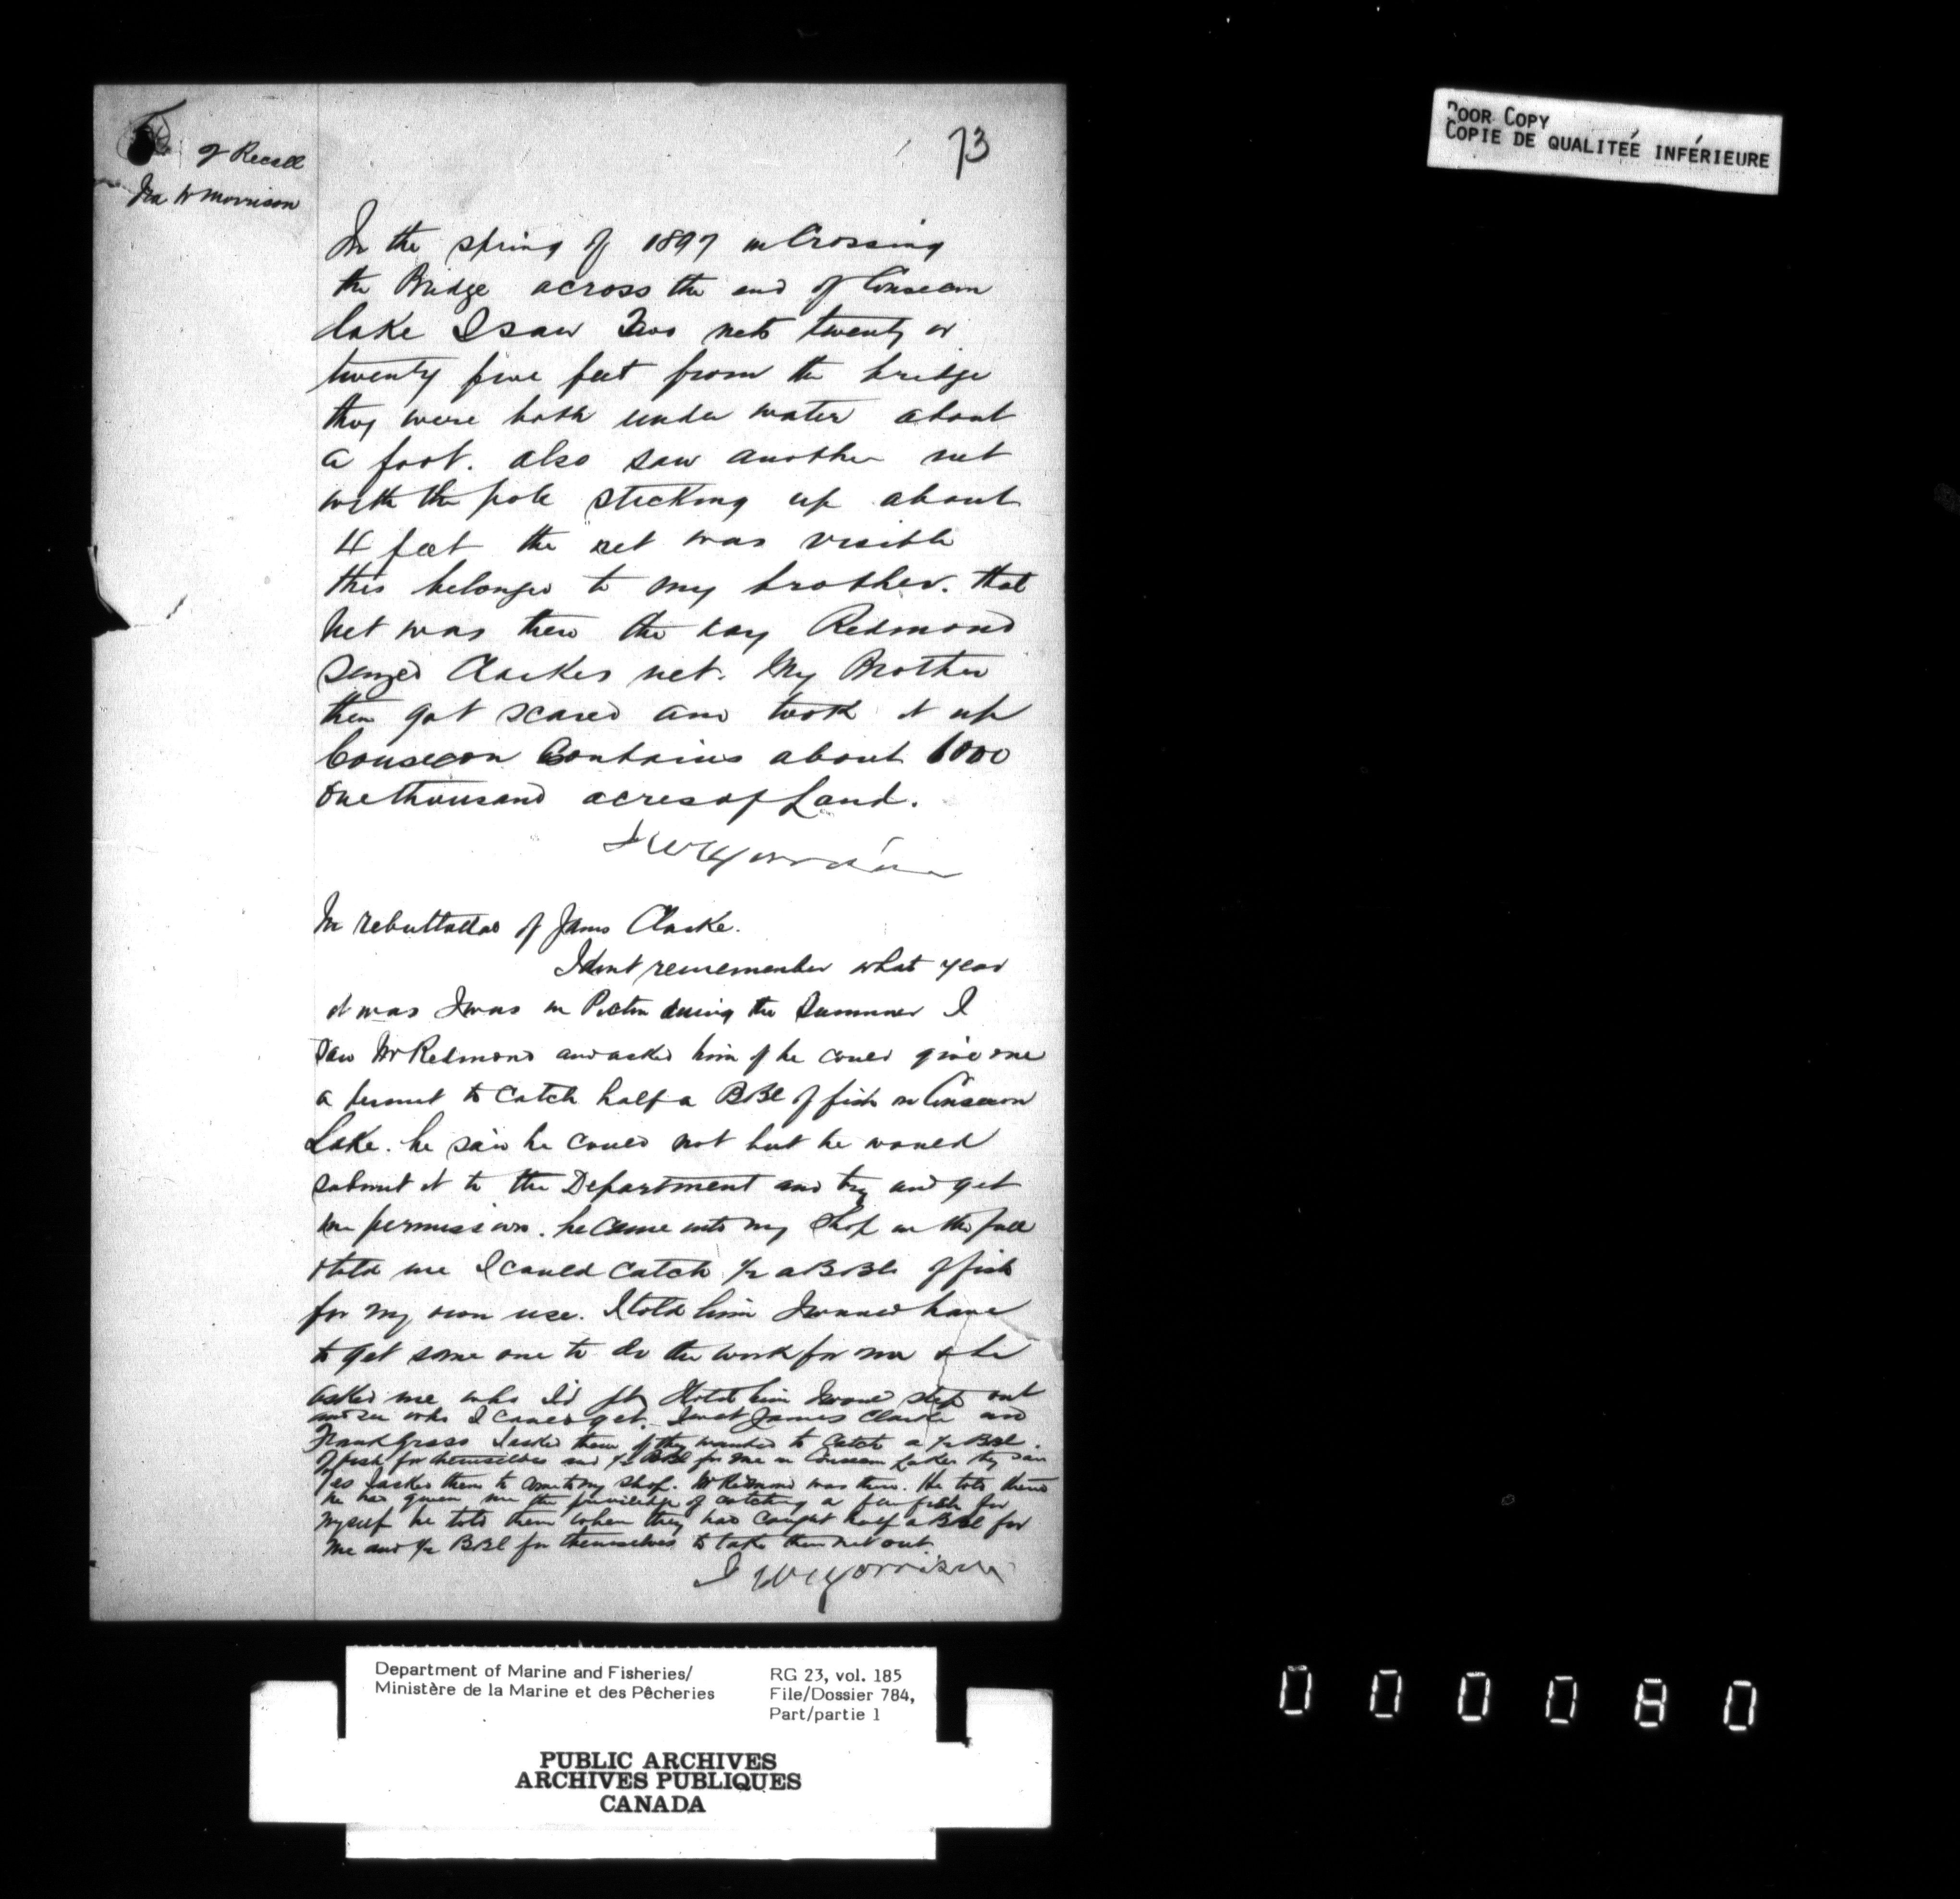 73
of Recall
Ira W Morrison
In the spring of 1897 in Crossing
the Bridge across the end of Consecon
lake I saw Two nets twenty or
twenty five feet from the bridge
they were both under water about
a foot. also saw another net
with the pole sticking up about
4 feet the net was visible
this belonged to my brother. that
Net was there the day Redmond
seized Clarkes net. My Brother
then got scared and took it up
Consecon Contains about 1000
One thousand acres of Land.
I W Morrison
In rebuttal of James Clarke.
I dont rememember what year
it was I was in Picton during the Summer I
saw Mr Redmond and asked him if he could give me
a permit to catch half a BBl of fish in Consecon
Lake. he said he could not but he would
submit it to the Department and try and get
me permission. he came into my shop in the fall
& told me I could catch 1/2 a BBl of fish
for my own use. I told him I would have
to get some one to do the work for me & he
asked me who I'd get I told him I would step out
and see who I could get. I met James Clarke and
Frank Grass I asked them if they wanted to catch a 1/2 BBl.
of fish for themselves and 1/2 BBl for me in Consecon Lake they said
Yes I asked them to come to my shop. Mr Redmond was there. He told them
he had given me the priviledge of catching a few fish for
myself he told them when they had caught half a BBl for
me and 1/2 BBl for themselves to take the net out
I W Morrison
POOR COPY
COPIE DE QUALITÉE INFÉRIEURE
Department of Marine and Fisheries/
Ministère de la Marine et des Pêcheries
RG 23, vol. 185
File/Dossier 784,
Part/partie 1
PUBLIC ARCHIVES
ARCHIVES PUBLIQUES
CANADA
000080